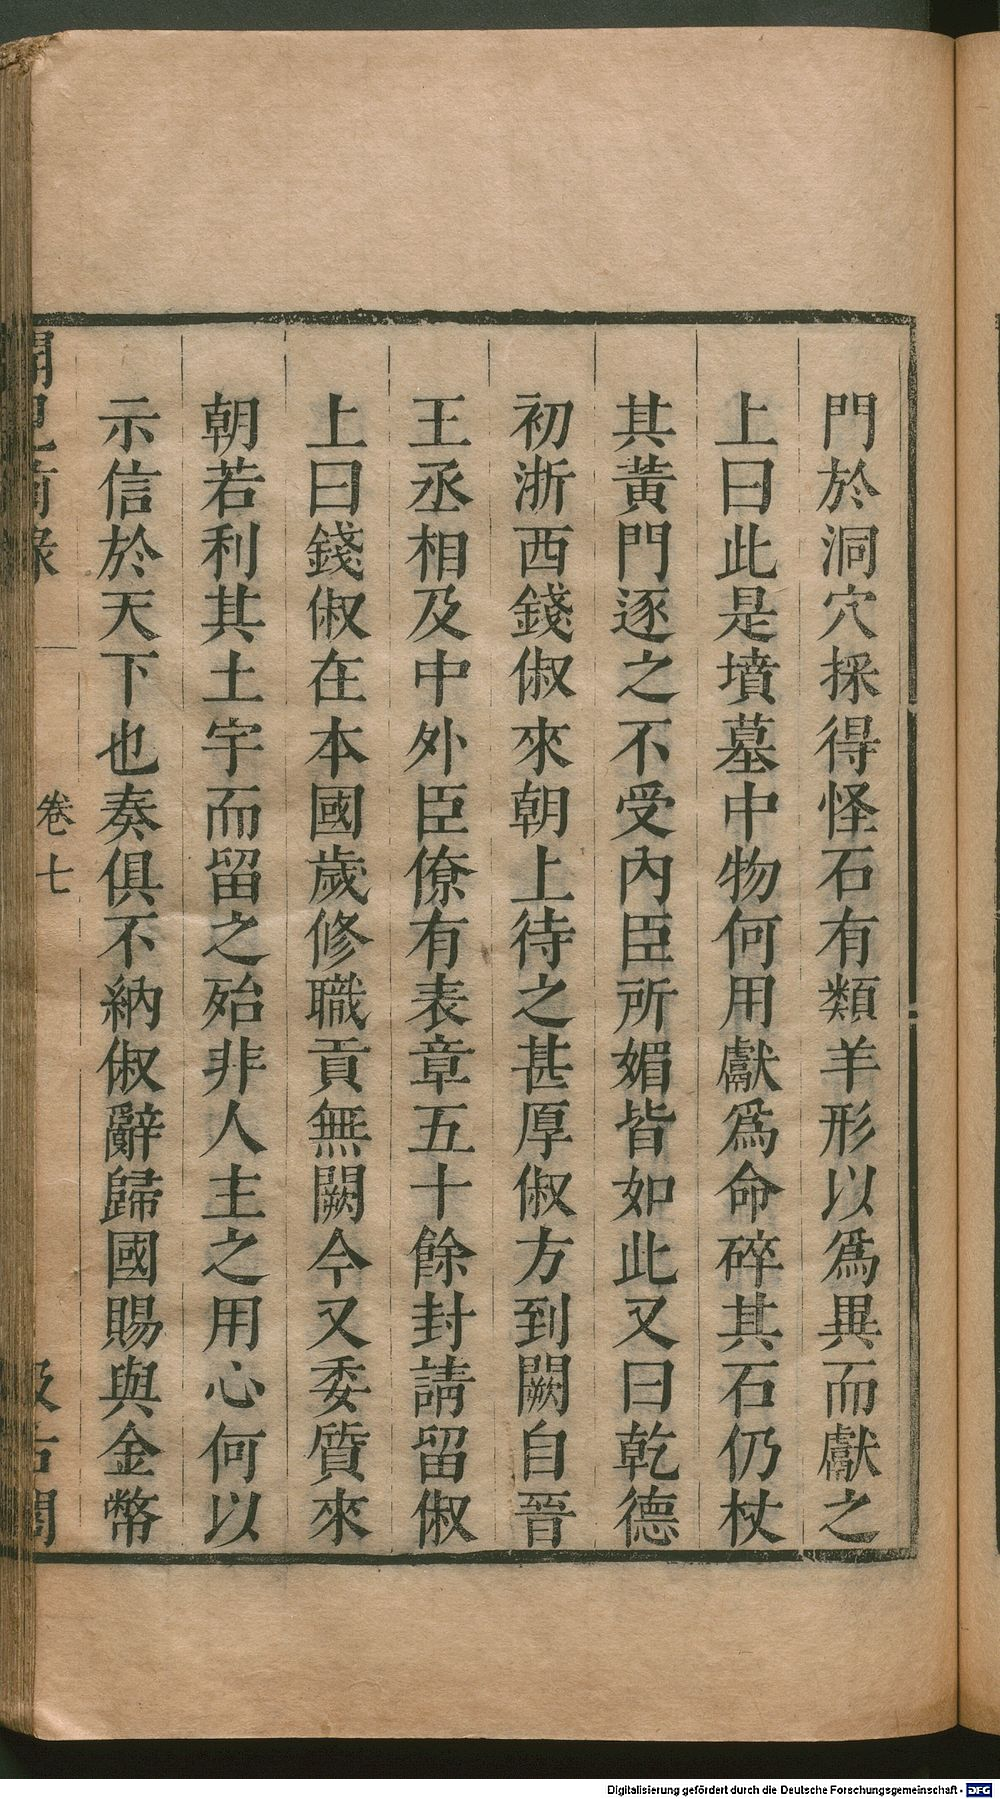 門於洞穴採得怪石有類羊形以爲異而獻之
上曰此是墳墓中物何用獻爲命碎其石仍杖
其黃門逐之不受內臣所媚皆如此又曰乾德
初浙西錢俶來朝上待之甚厚俶方到闕自晉
王丞相及中外臣僚有表章五十餘封請留俶
上曰錢俶在本國歲修職貢無闕今又委質來
朝若利其土宇而留之殆非人主之用心何以
示信於天下也奏俱不納俶辭歸國賜與金幣
卷七
Digitalisierung gefördert durch die Deutsche Forschungsgemeinschaft - DFG